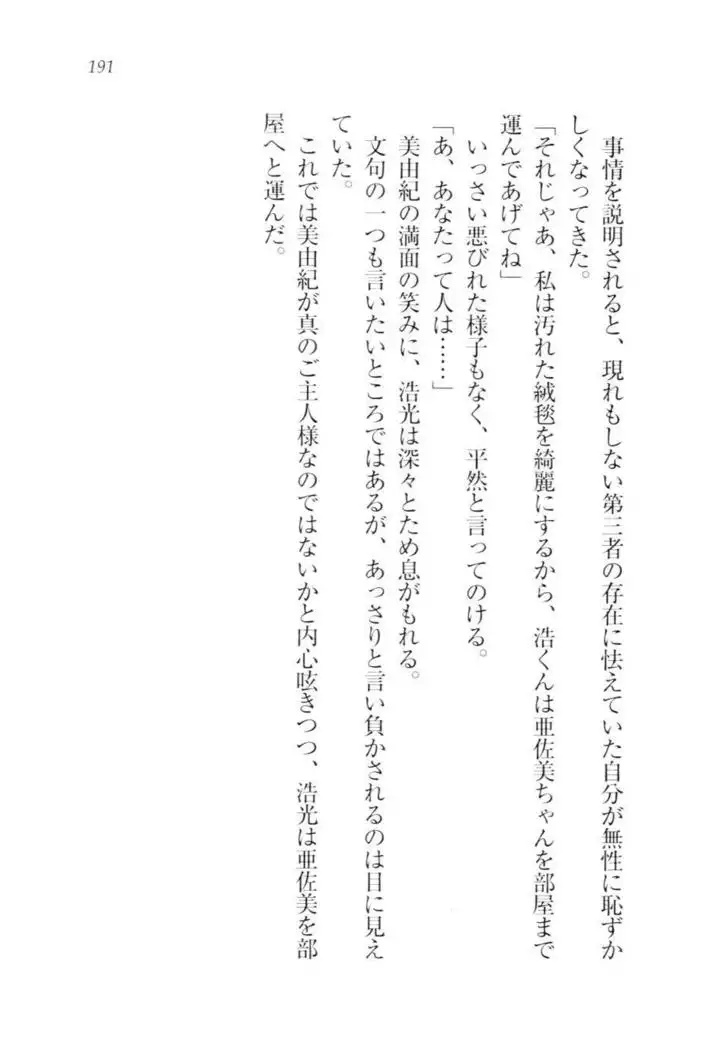 191
事情を説明されると、現れもしない第三者の存在に怯えていた自分が無性に恥ずか
しくなってきた。
「それじゃあ、私は汚れた絨毯を綺麗にするから、浩くんは亜佐美ちゃんを部屋まで
運んであげてね」
いっさい悪びれた様子もなく、平然と言ってのける。
「あ、あなたって人は……」
美由紀の満面の笑みに、浩光は深々とため息がもれる。
文句の一つも言いたいところではあるが、あっさりと言い負かされるのは目に見え
ていた。
これでは美由紀が真のご主人様なのではないかと内心呟きつつ、浩光は亜佐美を部
屋へと運んだ。